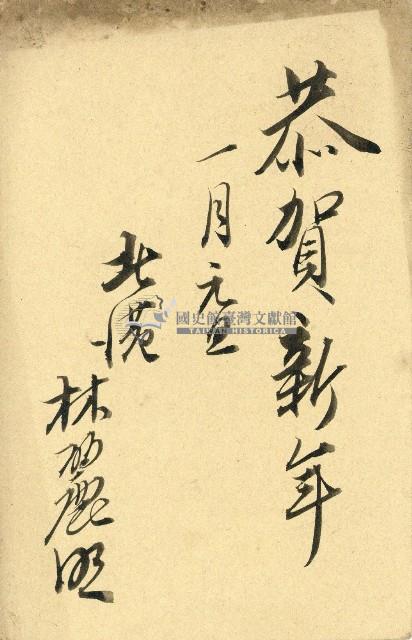 恭賀新年
一月元旦
北港
林麗明
國史館臺灣文獻館
TAIWAN HISTORICA